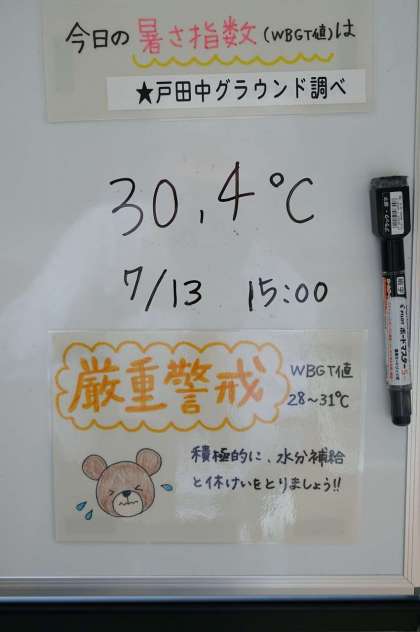 今日の暑さ指数(WBGT値)は
★戸田中グラウンド調べ
30.4℃
7/13 15:00
厳重警戒
WBGT値
28~31℃
積極的に、水分補給
と休けいをとりましょう!!
ボードマスター